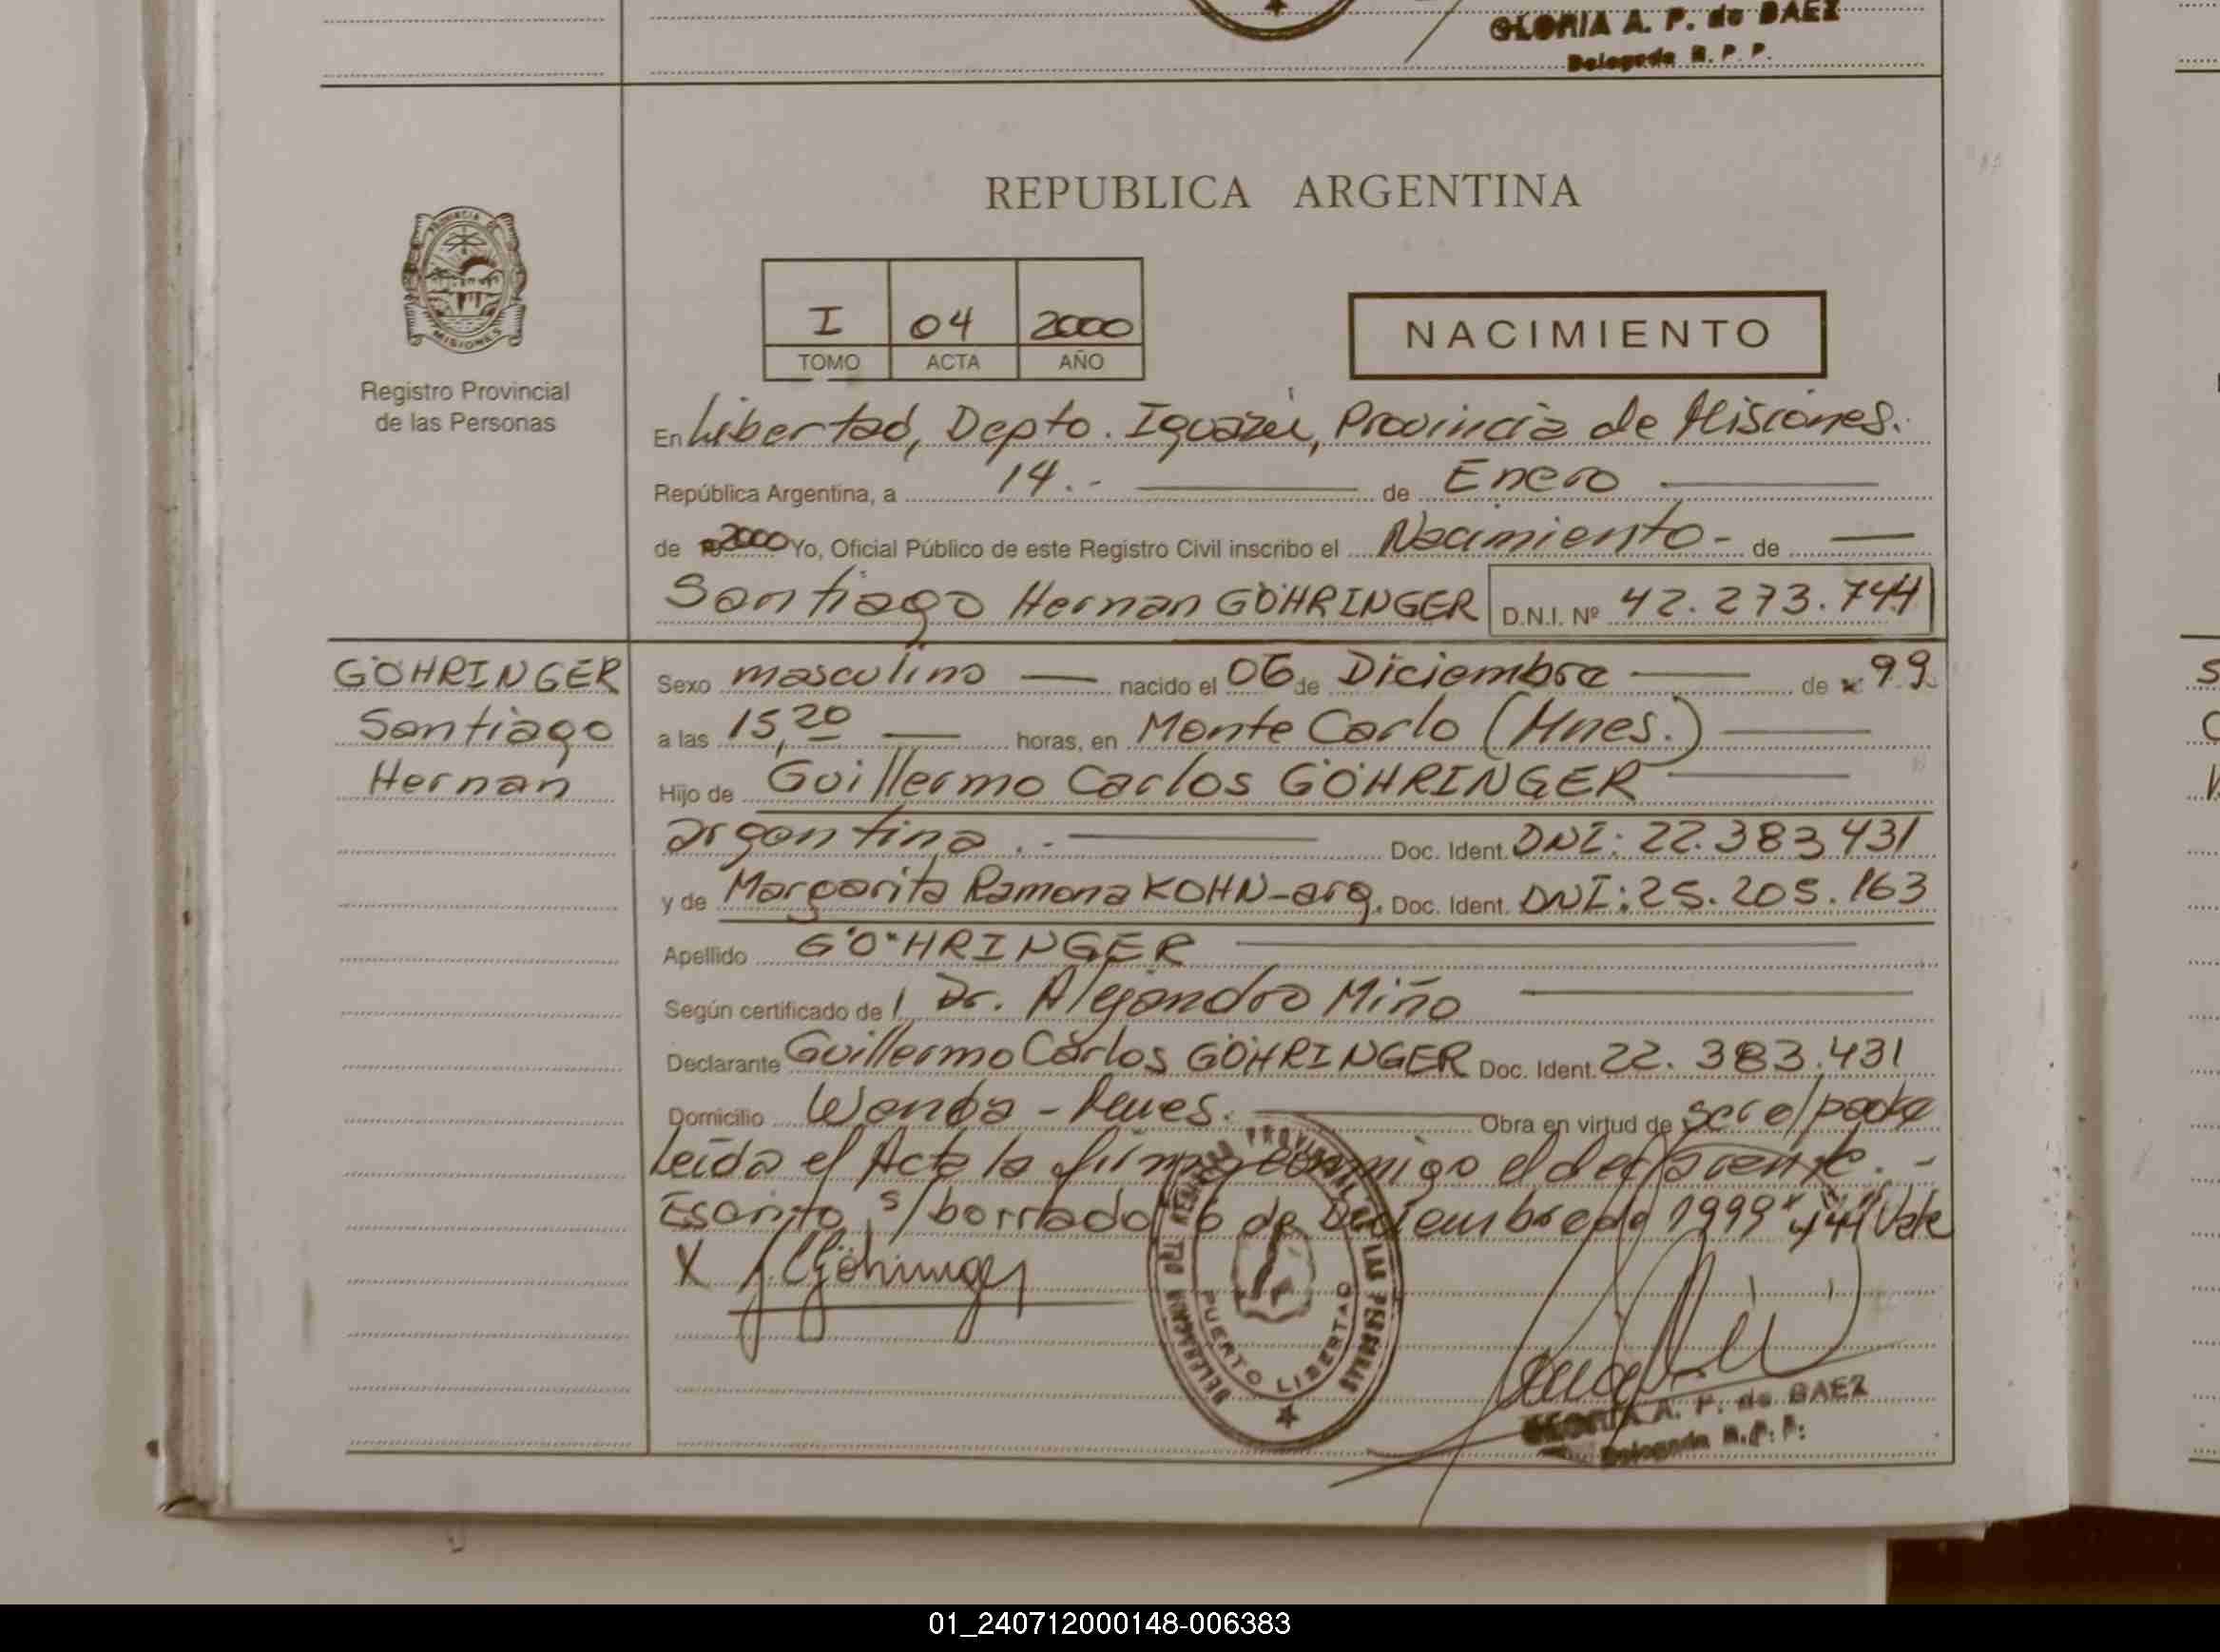 GLORIA A. P. de BAEZ
Delegada R. P. P.
REPUBLICA ARGENTINA
PROVINCIA DE MISIONES
Registro Provincial
de las Personas
I 04 2000
TOMO ACTA AÑO
NACIMIENTO
En Libertad, Depto. Iguazú, Provincia de Misiones.
República Argentina, a 14.- de Enero
de 2000 Yo, Oficial Público de este Registro Civil inscribo el Nacimiento - de
Santiago Hernan GÖHRINGER D.N.I. Nº 42.273.744
GÖHRINGER
Santiago
Hernan
Sexo masculino nacido el 06 de Diciembre de 99
a las 15,20 horas, en Monte Carlo (Mnes.)
Hijo de Guillermo Carlos GÖHRINGER
argentina.- Doc. Ident. DNI: 22.383.431
y de Margarita Ramona KOHN-arg. Doc. Ident. DNI: 25.205.163
Apellido GÖHRINGER
Según certificado de Dr. Alejandro Miño
Declarante Guillermo Carlos GÖHRINGER Doc. Ident. 22.383.431
Domicilio Wanda - Mnes. Obra en virtud de ser el padre
Leída el Acta la firma conmigo el declarante.-
Escrito s/borrado "6 de Diciembre de 1999" y "44" Vale
X Göhringer
DELEGACION DEL REGISTRO PROVINCIAL DE LAS PERSONAS
PUERTO LIBERTAD
GLORIA A. P. de BAEZ
Delegada R. P. P.
01_240712000148-006383